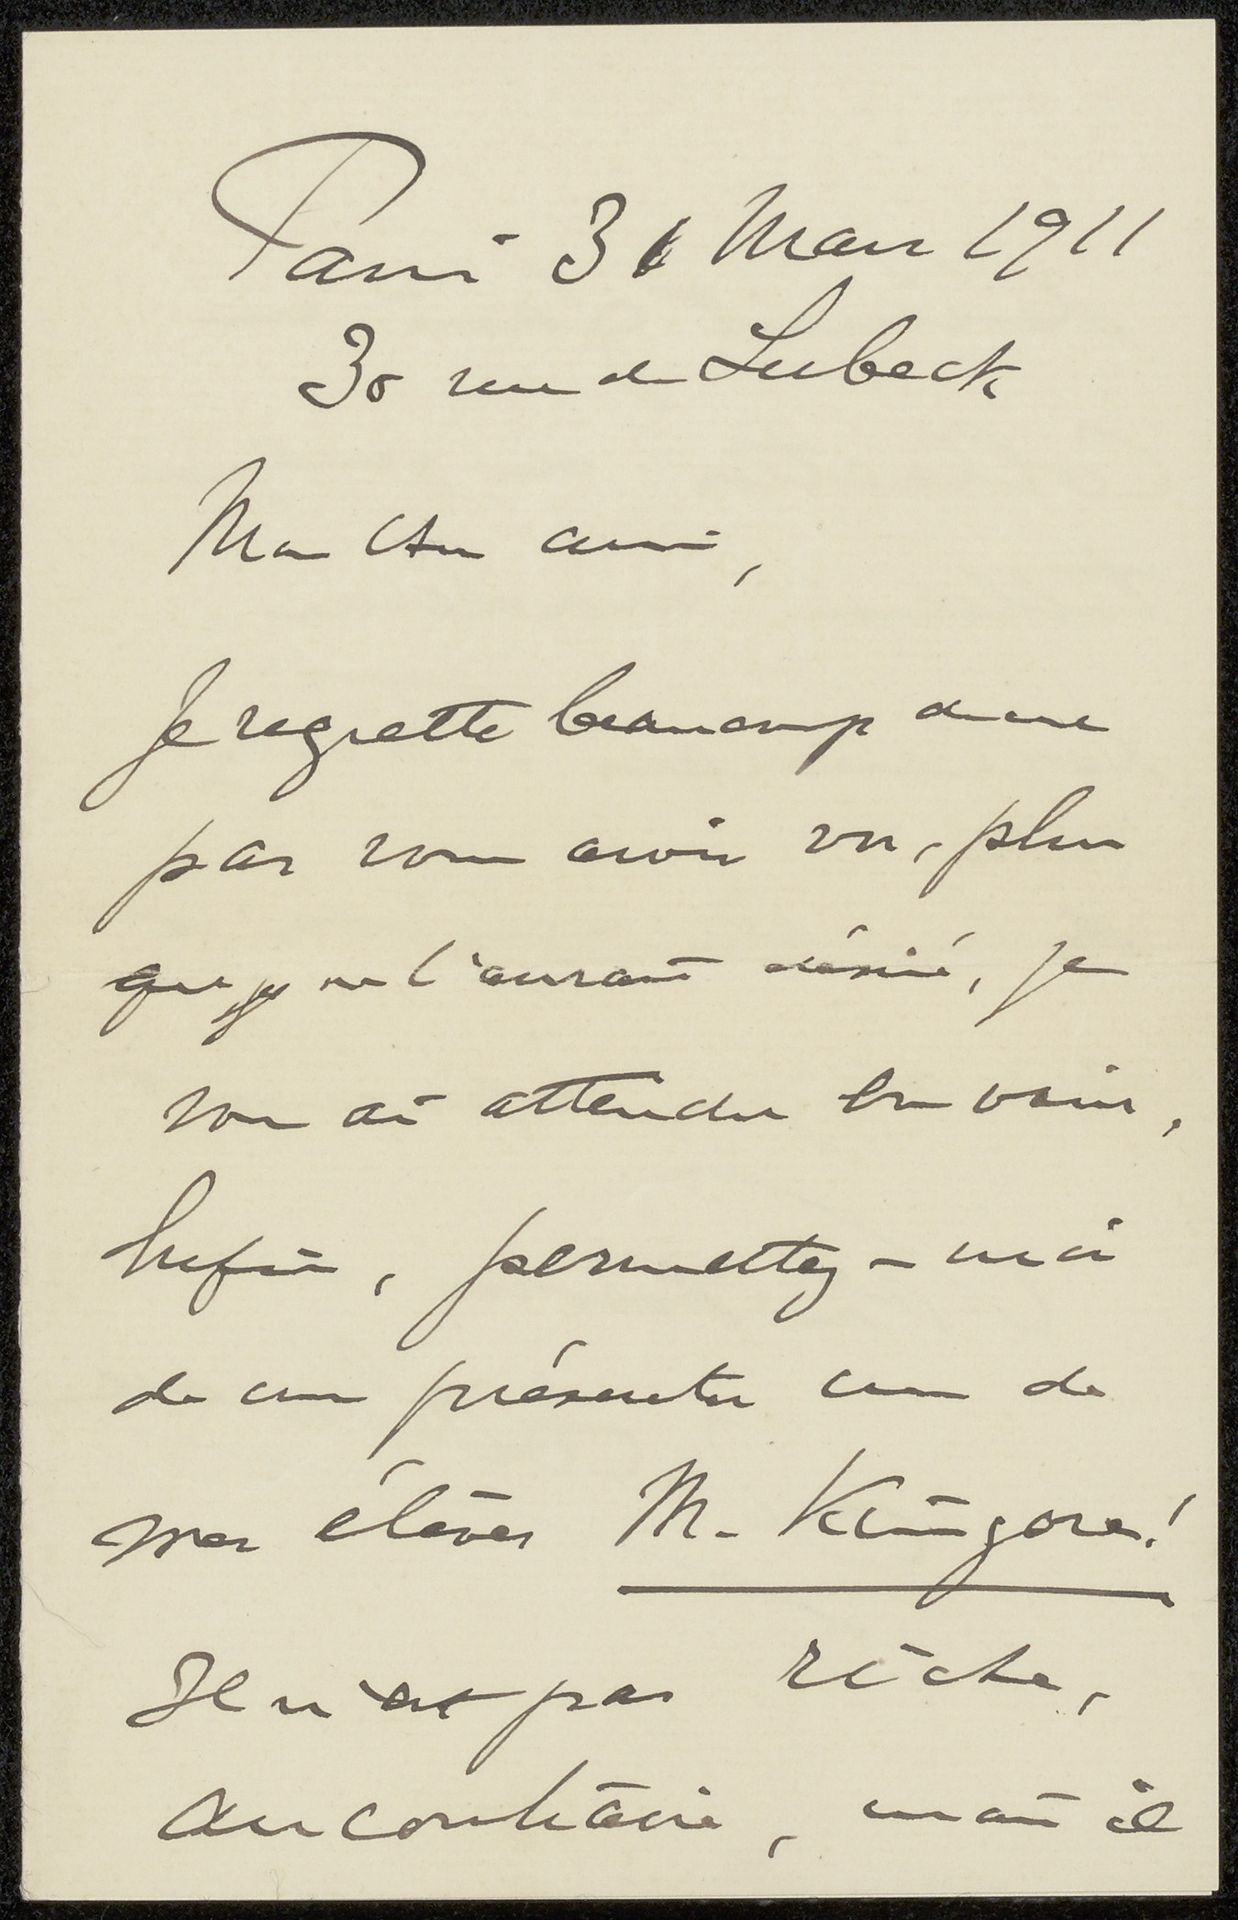 Paris 31 Mars 1911
30 rue de Lubeck
Mon cher ami,
Je regrette beaucoup de ne
pas vous avoir vu, plus
que je ne l'aurais désiré, je
vous ai attendu en vain,
Enfin, permettez-moi
de vous présenter un de
mes élèves M. Kilgore!
Il n'est pas riche,
au contraire, mais il